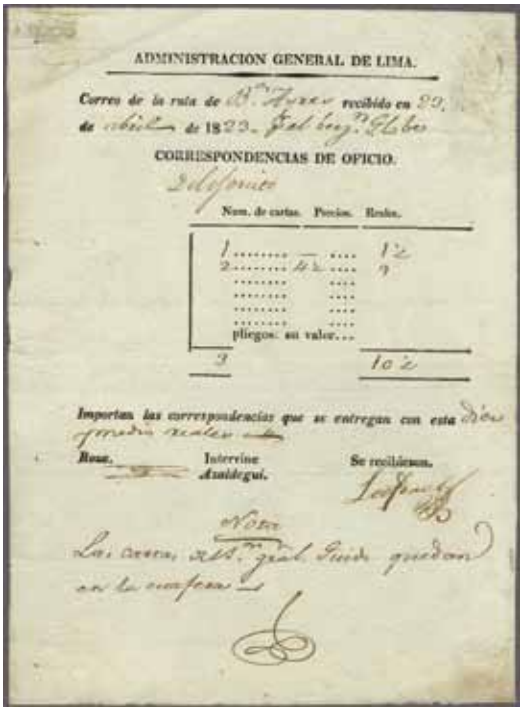 ADMINISTRACION GENERAL DE LIMA.
Correo de la ruta de Bs. Ayres recibido en 29.
de abril de 1823.
CORRESPONDENCIAS DE OFICIO.
Num. de cartas. Precios. Reales.
1 ........ — .... 1½
2 ........ 4½ .... 9
........ ....
........ ....
........ ....
........ ....
pliegos: su valor...
3 10½
Importan las correspondencias que se entregan con esta Diez
y medio reales
Roux. Intervine Se recibieron.
Azaldegui.
Nota
Las cartas del Sr. Gral. Guido quedan
en la